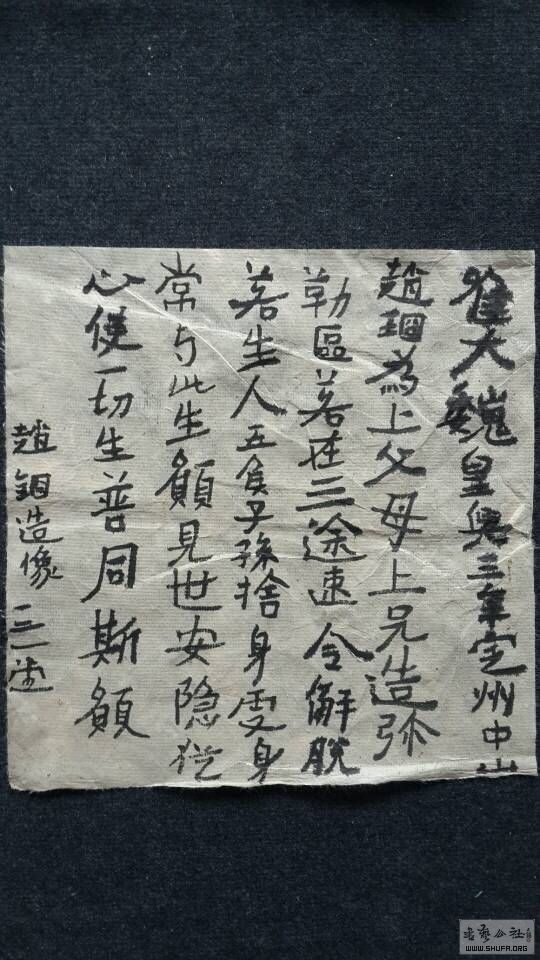 隹大魏皇興三年定州中山
趙琄為上父母上兄造弥
勒區若在三途速令解脫
若生人五負子孫捨身受身
常与此生願見世安隐從
心使一切生普同斯願
趙琄造像 三一
WWW.SHUFA.ORG